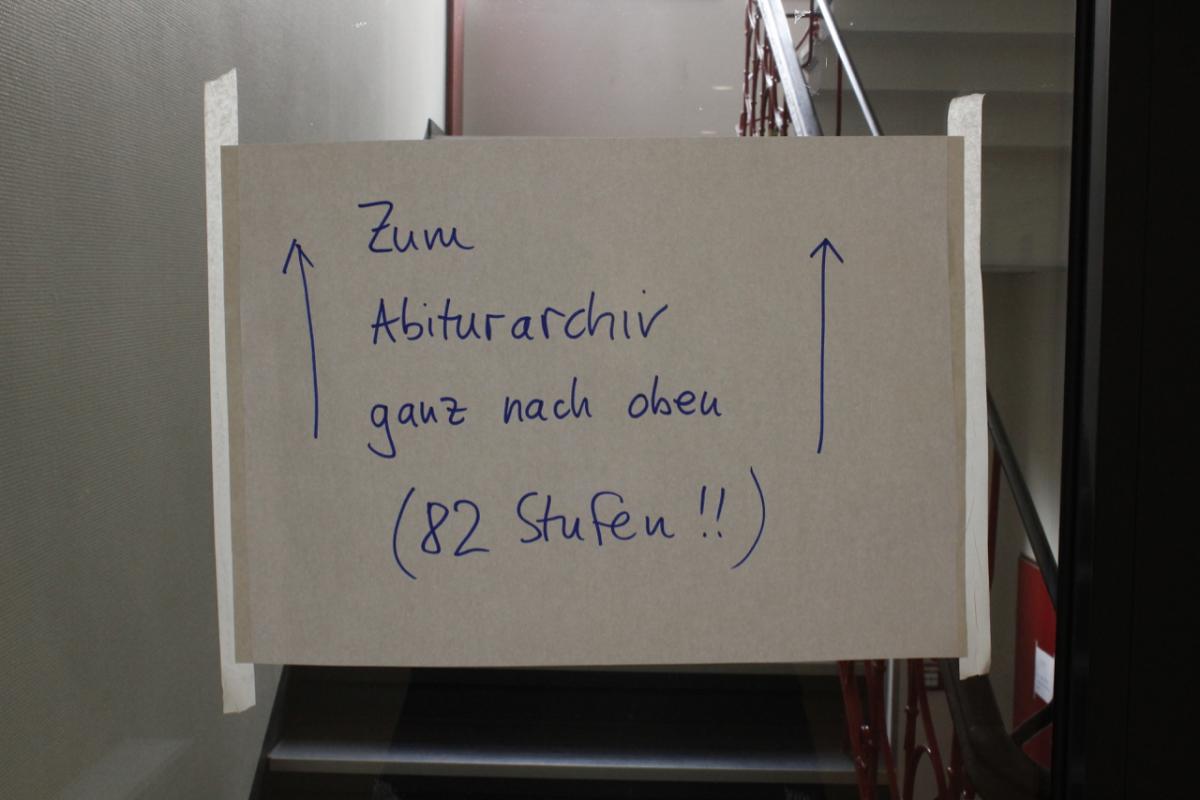 Zum
Abiturarchiv
ganz nach oben
(82 Stufen!!)